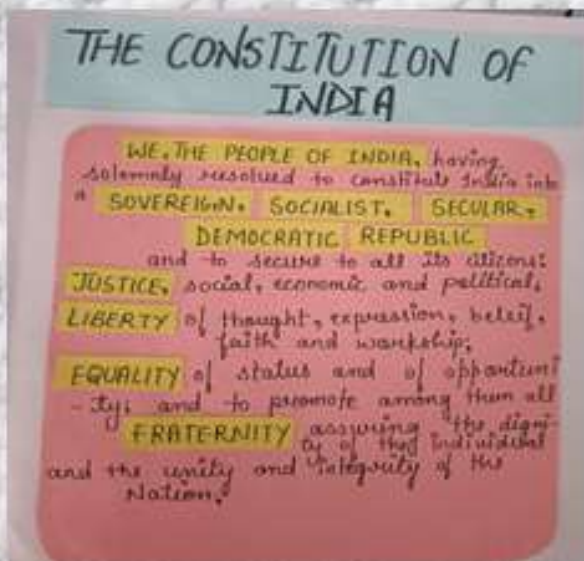 THE CONSTITUTION OF
INDIA
WE, THE PEOPLE OF INDIA, having
solemnly resolved to constitute India into
a SOVEREIGN, SOCIALIST, SECULAR,
DEMOCRATIC REPUBLIC
and to secure to all its citizens:
JUSTICE, social, economic and political,
LIBERTY of thought, expression, beleif,
faith and workship;
EQUALITY of status and of opportuni
-ty; and to promote among them all
FRATERNITY assuring the digni-
ty of the individual
and the unity and integrity of the
Nation.